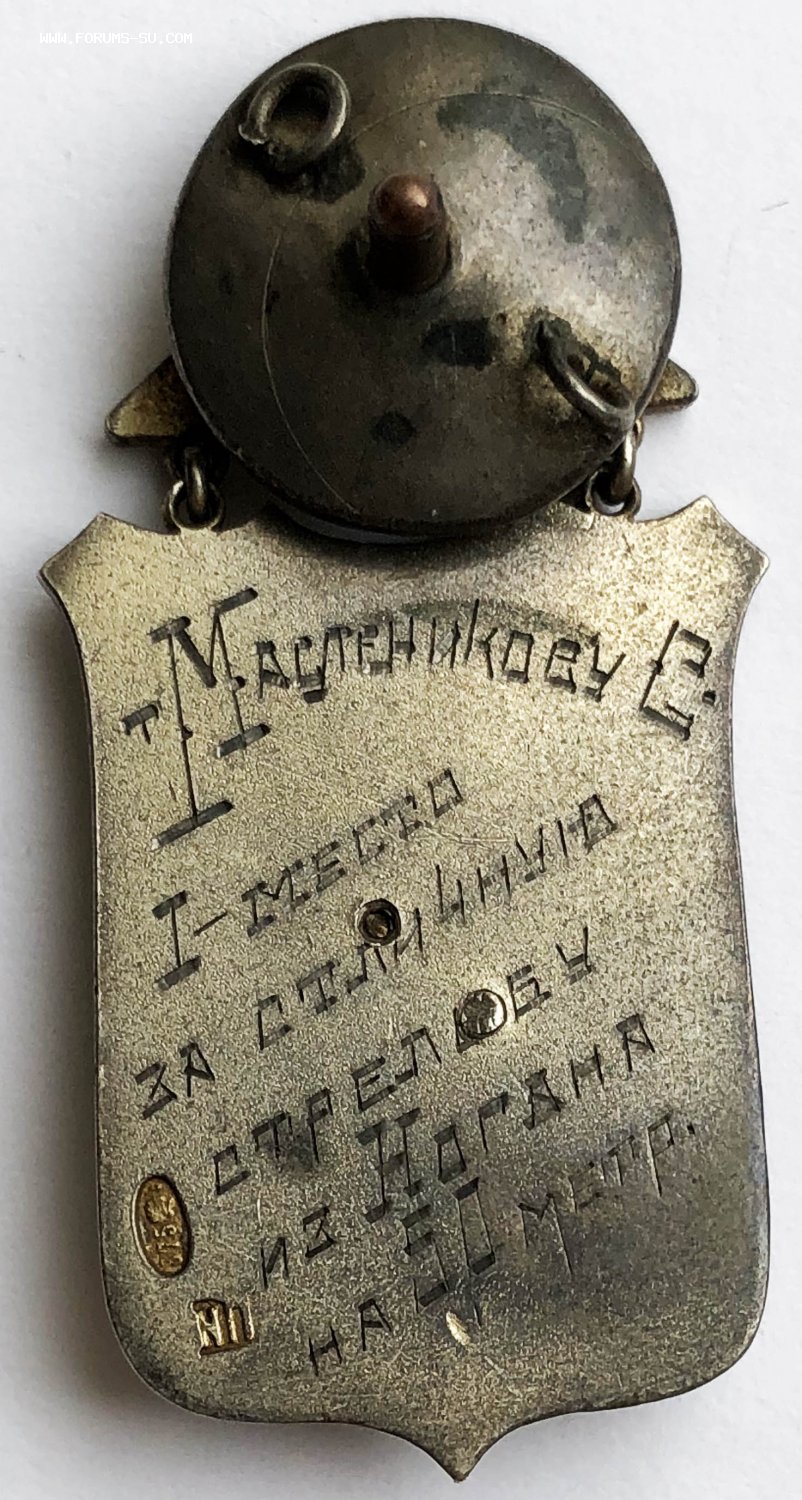 WWW.FORUMS-SU.COM
т. Масленикову С.
I-место
за отличную
стрельбу
из Ногана
на 50 метр.